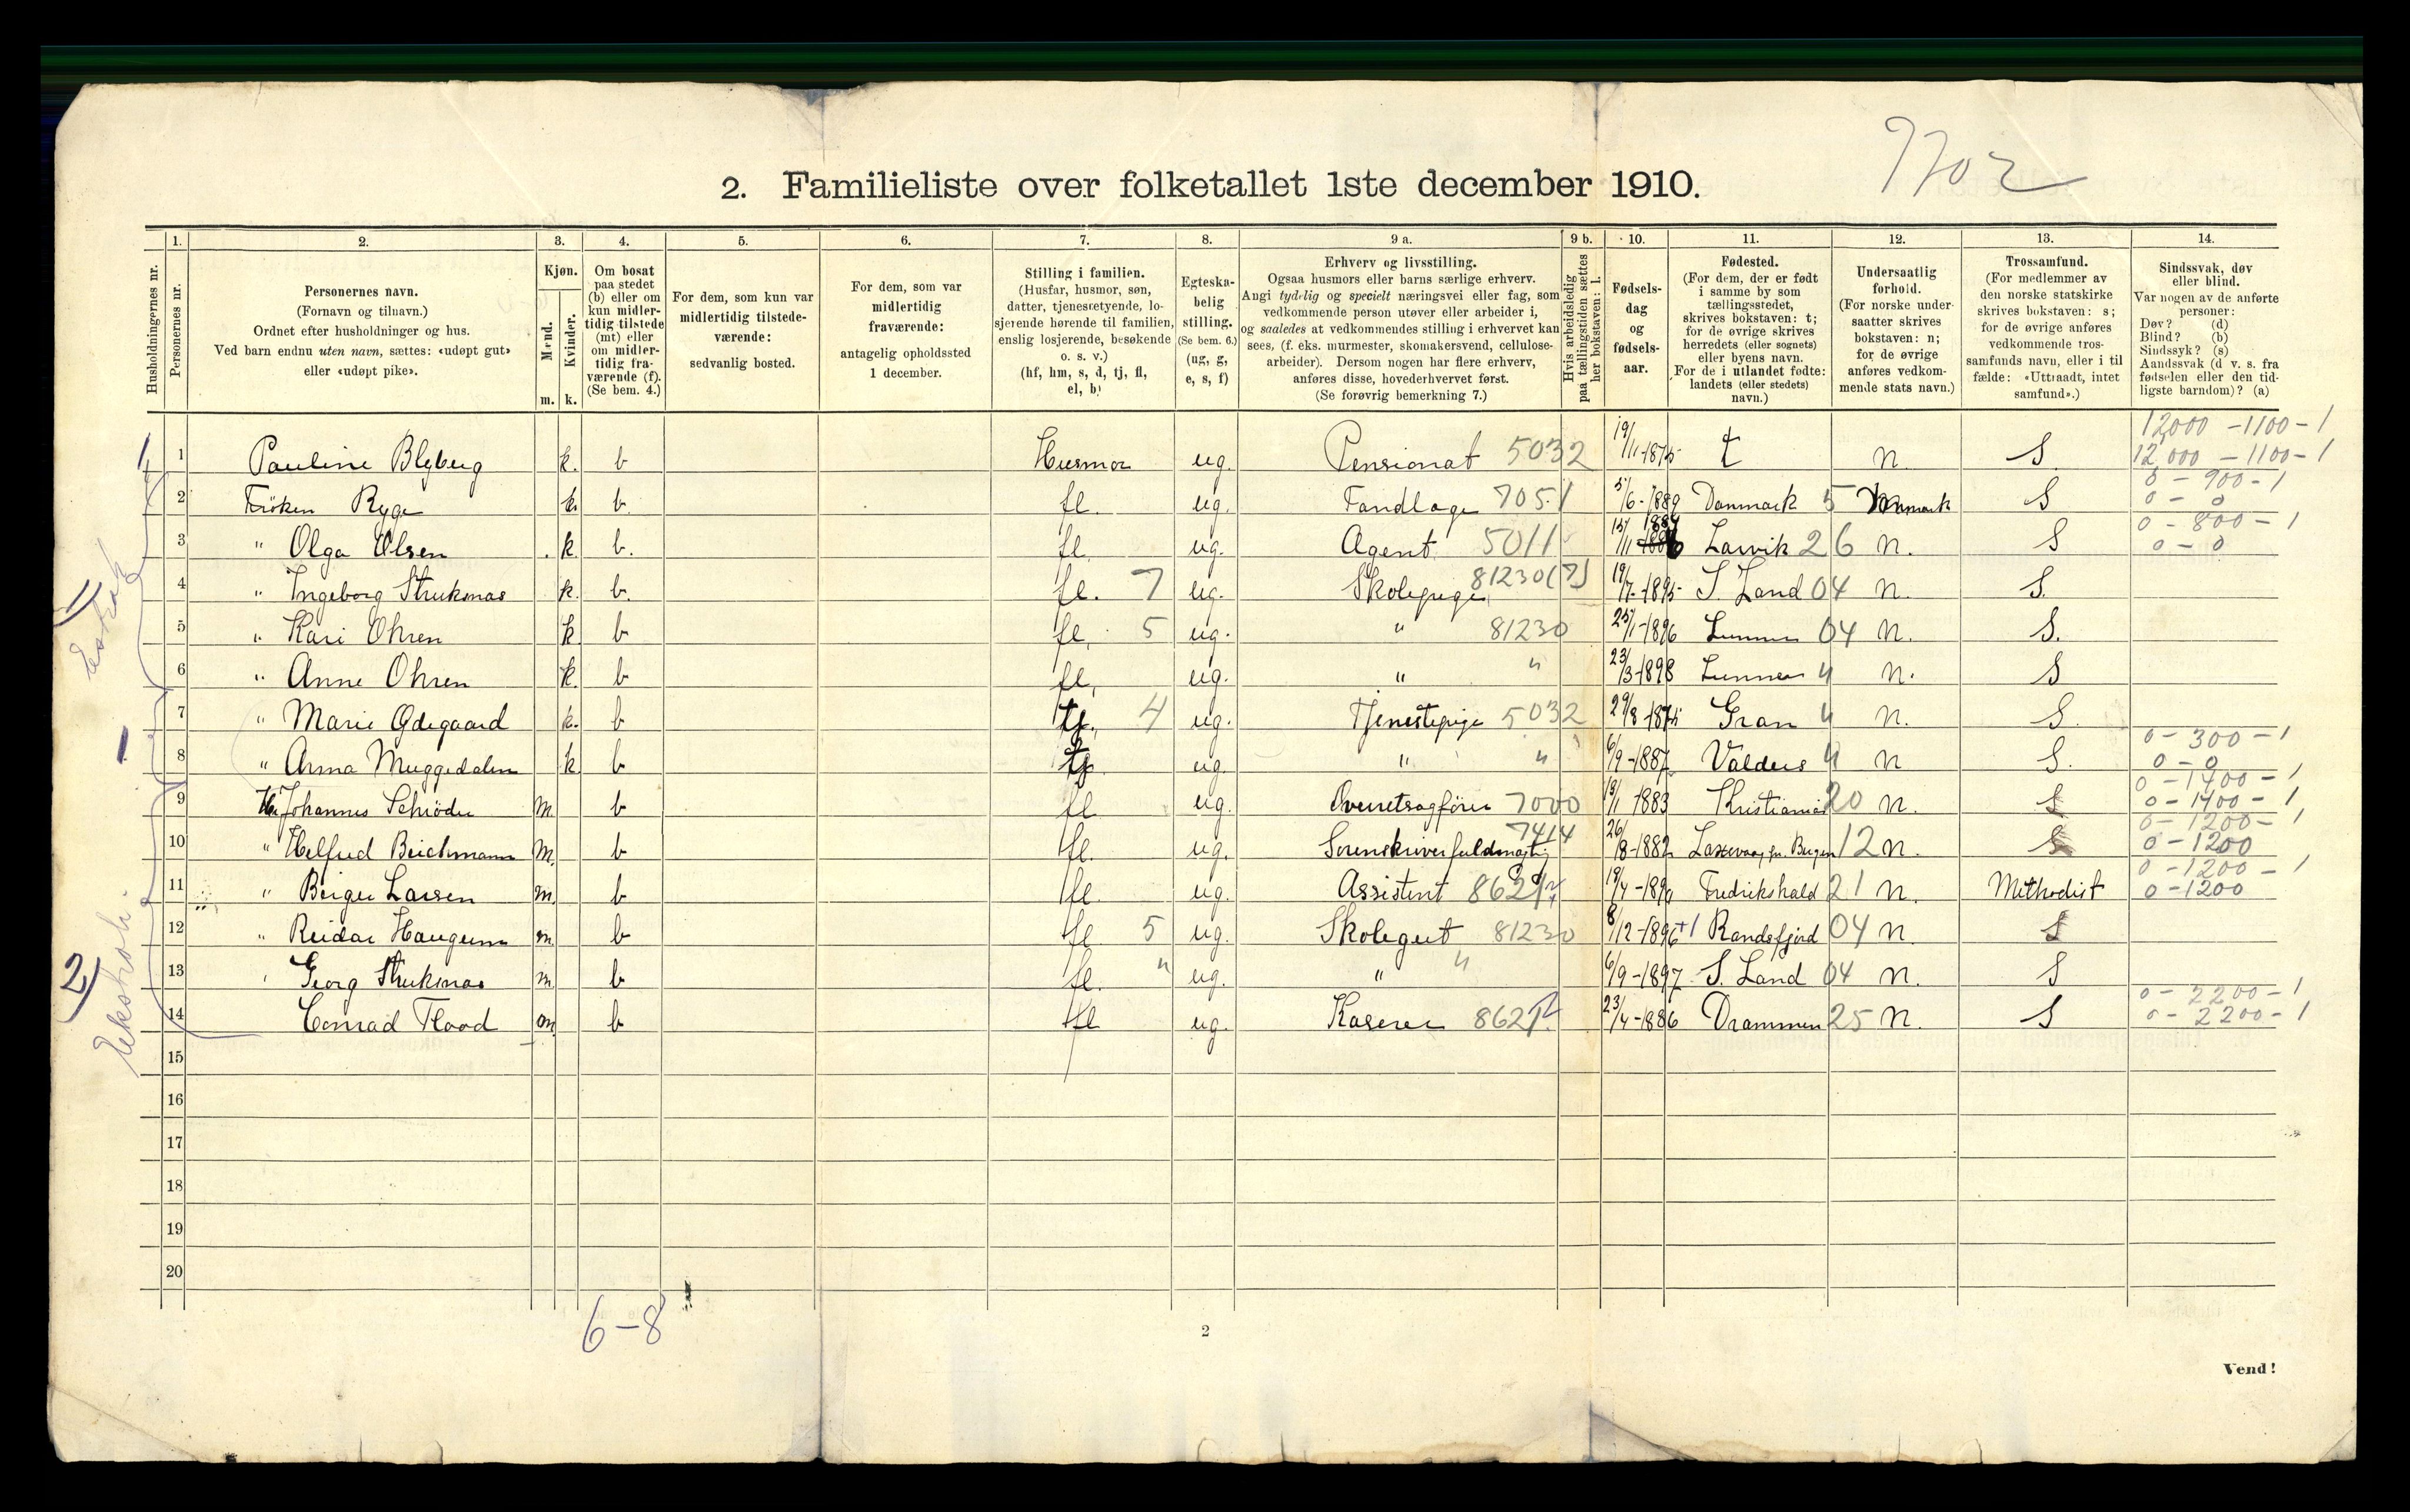 2. Familieliste over folketallet 1ste december 1910.
1. 2. 3. 4. 5. 6. 7. 8. 9 a. 9 b. 10. 11. 12. 13. 14.
Husholdningernes nr.
Personernes nr.
Personernes navn.
(Fornavn og tilnavn.)
Ordnet efter husholdninger og hus.
Ved barn endnu uten navn, sættes: «udøpt gut»
eller «udøpt pike».
Kjøn.
Mænd.
Kvinder.
m. k.
Om bosat
paa stedet
(b) eller om
kun midler-
tidig tilstede
(mt) eller
om midler-
tidig fra-
værende (f).
(Se bem. 4.)
For dem, som kun var
midlertidig tilstede-
værende:
sedvanlig bosted.
For dem, som var
midlertidig
fraværende:
antagelig opholdssted
1 december.
Stilling i familien.
(Husfar, husmor, søn,
datter, tjenestetyende, lo-
sjerende hørende til familien,
enslig losjerende, besøkende
o. s. v.)
(hf, hm, s, d, tj, fl,
el, b)
Egteska-
belig
stilling.
(Se bem. 6.)
(ug, g,
e, s, f)
Erhverv og livsstilling.
Ogsaa husmors eller barns særlige erhverv.
Angi tydelig og specielt næringsvei eller fag, som
vedkommende person utøver eller arbeider i,
og saaledes at vedkommendes stilling i erhvervet kan
sees, (f. eks. murmester, skomakersvend, cellulose-
arbeider). Dersom nogen har flere erhverv,
anføres disse, hovederhvervet først.
(Se forøvrig bemerkning 7.)
Hvis arbeidsledig
paa tællingstiden sættes
her bokstaven: l.
Fødsels-
dag
og
fødsels-
aar.
Fødested.
(For dem, der er født
i samme by som
tællingsstedet,
skrives bokstaven: t;
for de øvrige skrives
herredets (eller sognets)
eller byens navn.
For de i utlandet fødte:
landets (eller stedets)
navn.)
Undersaatlig
forhold.
(For norske under-
saatter skrives
bokstaven: n;
for de øvrige
anføres vedkom-
mende stats navn.)
Trossamfund.
(For medlemmer av
den norske statskirke
skrives bokstaven: s;
for de øvrige anføres
vedkommende tros-
samfunds navn, eller i til
fælde: «Uttraadt, intet
samfund».)
Sindssvak, døv
eller blind.
Var nogen av de anførte
personer:
Døv? (d)
Blind? (b)
Sindssyk? (s)
Aandssvak (d v. s. fra
fødselen eller den tid-
ligste barndom)? (a)
12000 - 1100 - 1
1 Pauline Blyberg k. b Husmor ug. Pensionat 5032 19/11-1875 t n. S. 12,000 - 1100 - 1
0 - 900 - 1
2 Fröken Ryge k. b. fl. ug. Tandlæge 7051 5/6-1889 Danmark 5 Danmark S 0 - 0
0 - 800 - 1
3 " Olga Olsen k. b. fl. ug. Agent 5011 15/11 1884 Larvik 26 n. S 0 - 0
4 " Ingeborg Struksnæs k. b. fl. 7 ug. Skolepige 81230(7) 19/7-1895 S. Land 04 n. S.
5 " Kari Ohren k b fl. 5 ug. " 81230 25/1-1896 Lunner 04 n. S.
6 " Anne Ohren k. b fl. ug. " " 23/3-1898 Lunner " n. S
7 " Marie Ødegaard k. b tj. 4 ug. Tjenestepige 5032 29/8-1875 Gran " n. S.
0 - 300 - 1
8 " Anna Muggedalen k b tj. ug. " " 6/9-1887 Valders " n S. 0 - 0
0 - 1400 - 1
9 Hr. Johannes Schröder m. b fl ug. Overretsagförer 7000 13/1 1883 Kristiania 20 n. S 0 - 1400 - 1
0 - 1200 - 1
10 " Helfred Beichmann m. b fl. ug. Sorenskriverfuldmægtig 7414 26/8-1882 Laxevaag pr. Bergen 12 n. S 0 - 1200
0 - 1200 - 1
11 " Birger Larsen m. b fl. ug. Assistent 8621 19/4-1890 Fredrikshald 21 n. Methodist 0 - 1200
12 " Reidar Haugerin m b fl 5 ug. Skolegut 81230 8/12-1896 +1 Randsfjord 04 n. S
13 " Georg Struksnæs m b fl. " ug. " " 6/9-1897 S. Land 04 n. S
0 - 2200 - 1
14 Conrad Flood m b fl ug. Kaserer 8621 23/4-1886 Drammen 25 n. S 0 - 2200 - 1
15
16
17
18
19
20
1
2
6-8
2
Vend!